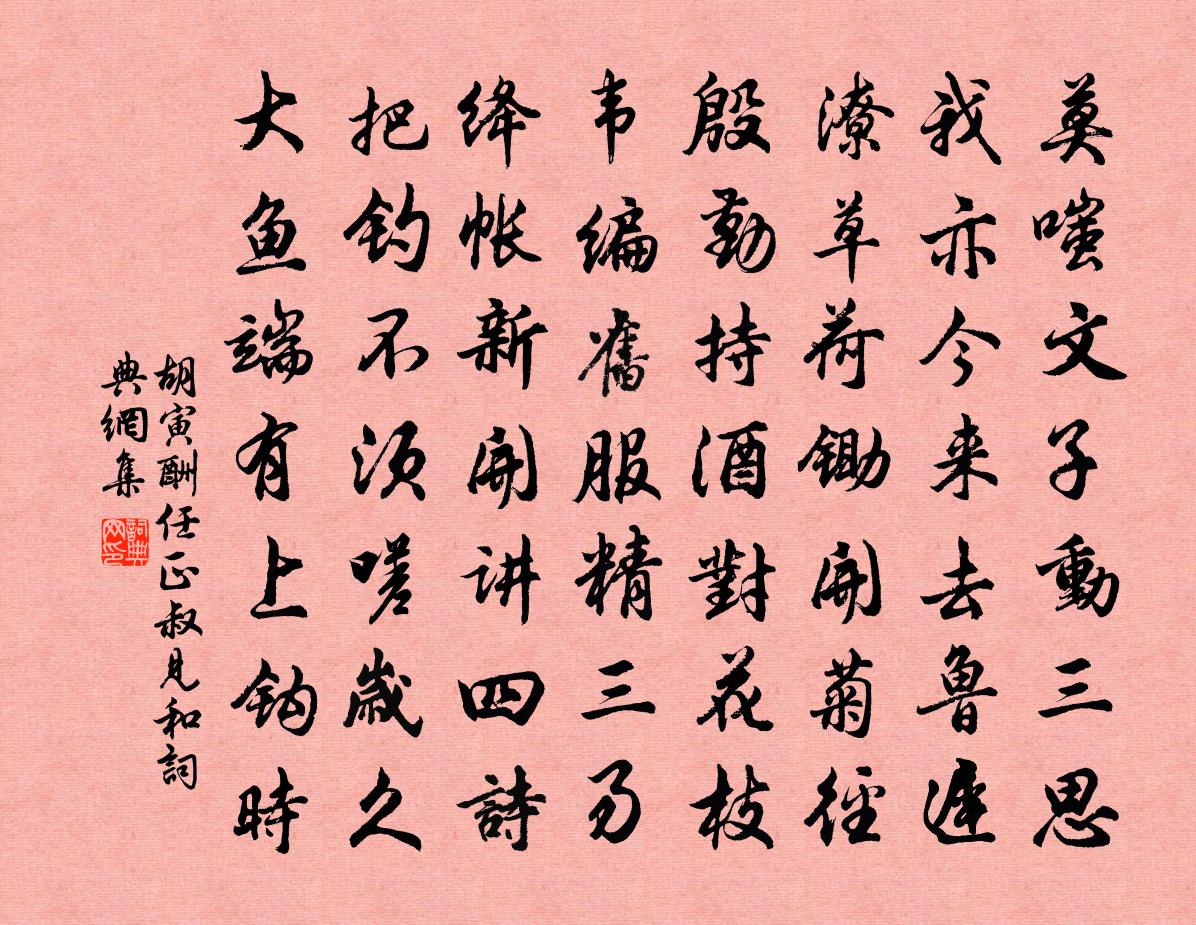 莫嗤文子動三思
我亦今来去鲁遲
潦草荷锄開菊徑
殷勤持酒對花枝
韦编舊服精三易
绛帐新開讲四詩
把钓不须嗟歲久
大鱼端有上钩時
胡寅酬任正叔見和詞
典網集
詞典
网印